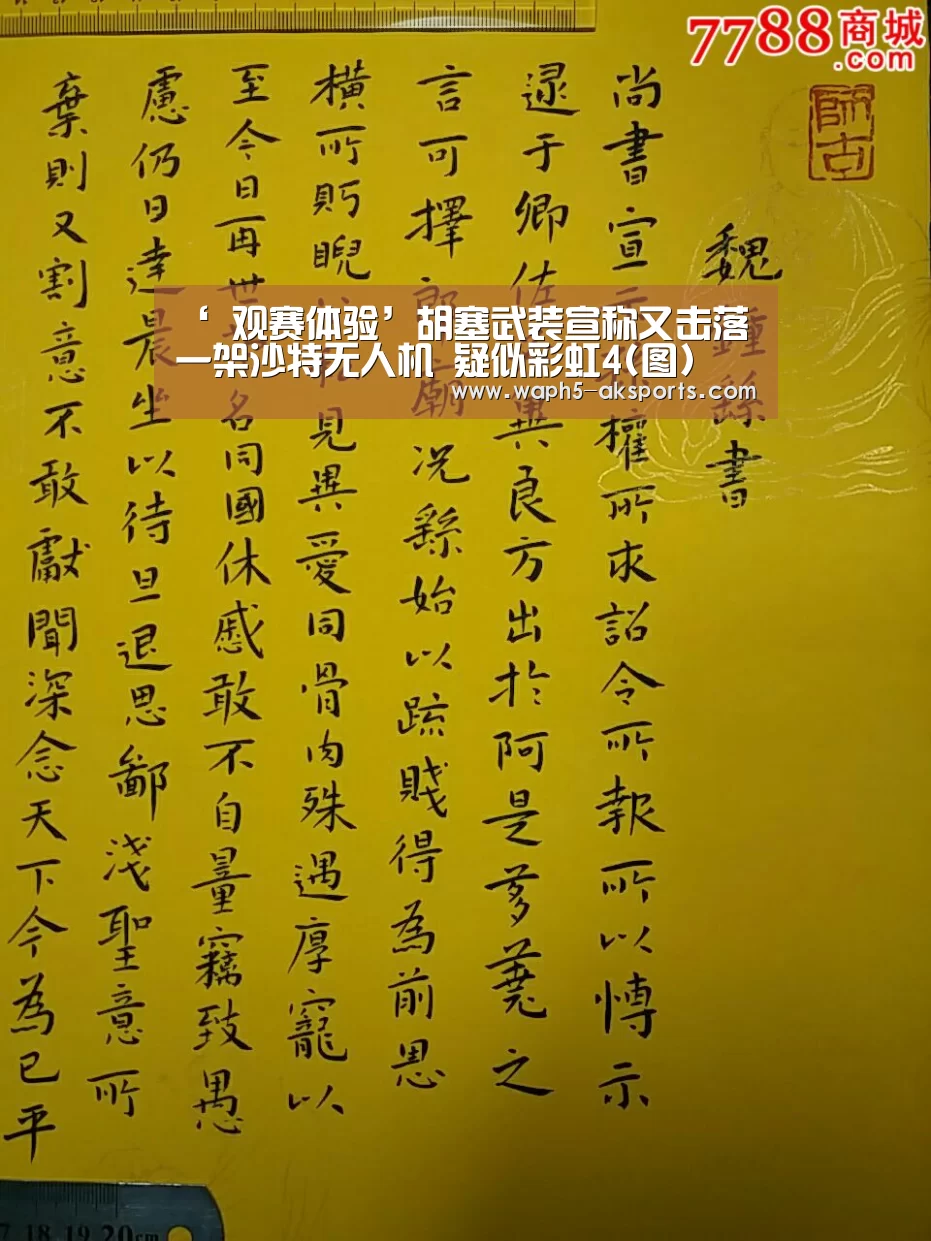 7788商城
.com
师古
魏鍾繇書
尚書宣示孫權所求詔令所報所以愽示
逮于卿佐冀良方出於阿是芻蕘之
言可擇郎廟況繇始以疏賤得為前恩
橫所眄睨公私見異愛同骨肉殊遇厚寵以
至今日再世名同國休慼敢不自量竊致愚
慮仍日達晨坐以待旦退思鄙淺聖意所
棄則又割意不敢獻聞深念天下今為已平
‘观赛体验’胡塞武装宣称又击落
一架沙特无人机 疑似彩虹4(图)
www.waph5-aksports.com
17 18 19 20cm